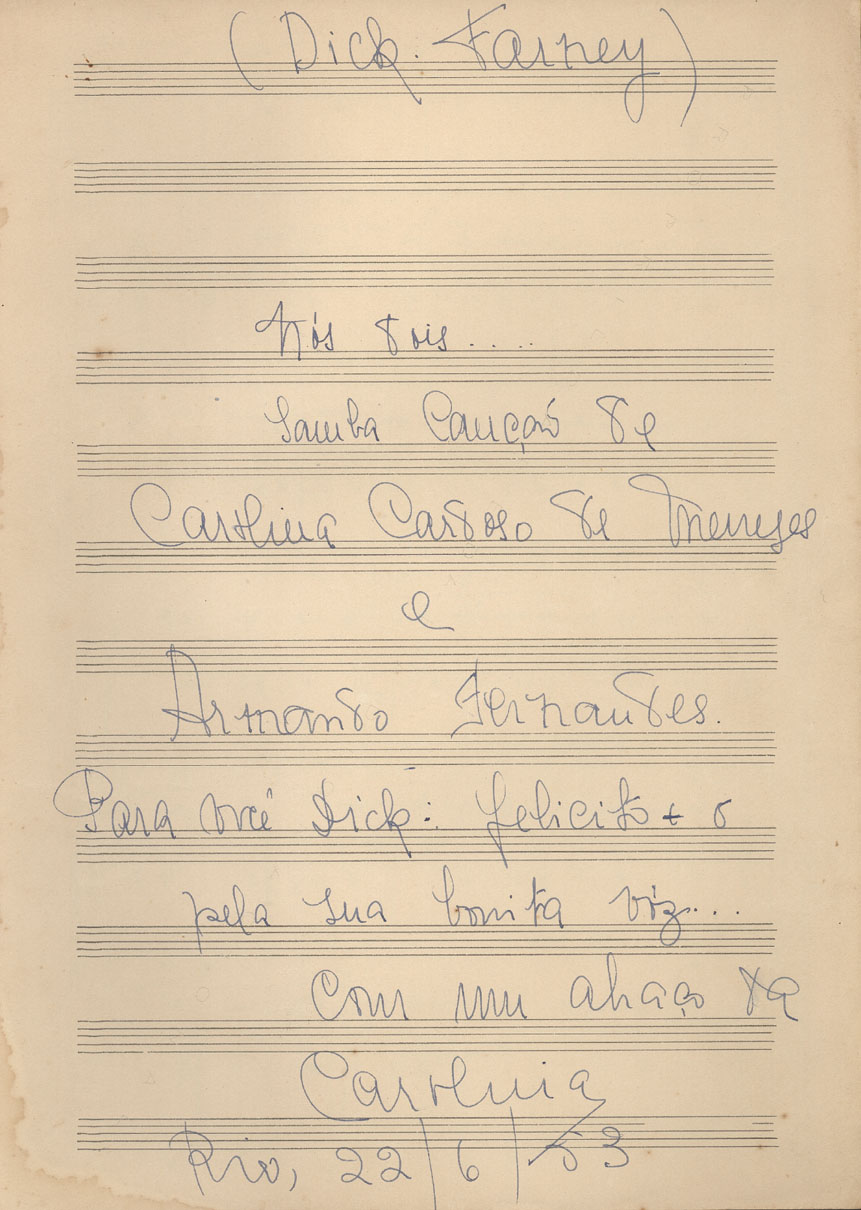 (Dick Farney)
Nós dois.....
Samba Canção de
Carolina Cardoso de Menezes
e
Armando Fernandes.
Para você Dick: felicito + o
pela sua bonita vóz...
Com um abraço da
Carolina
Rio, 22/6/53